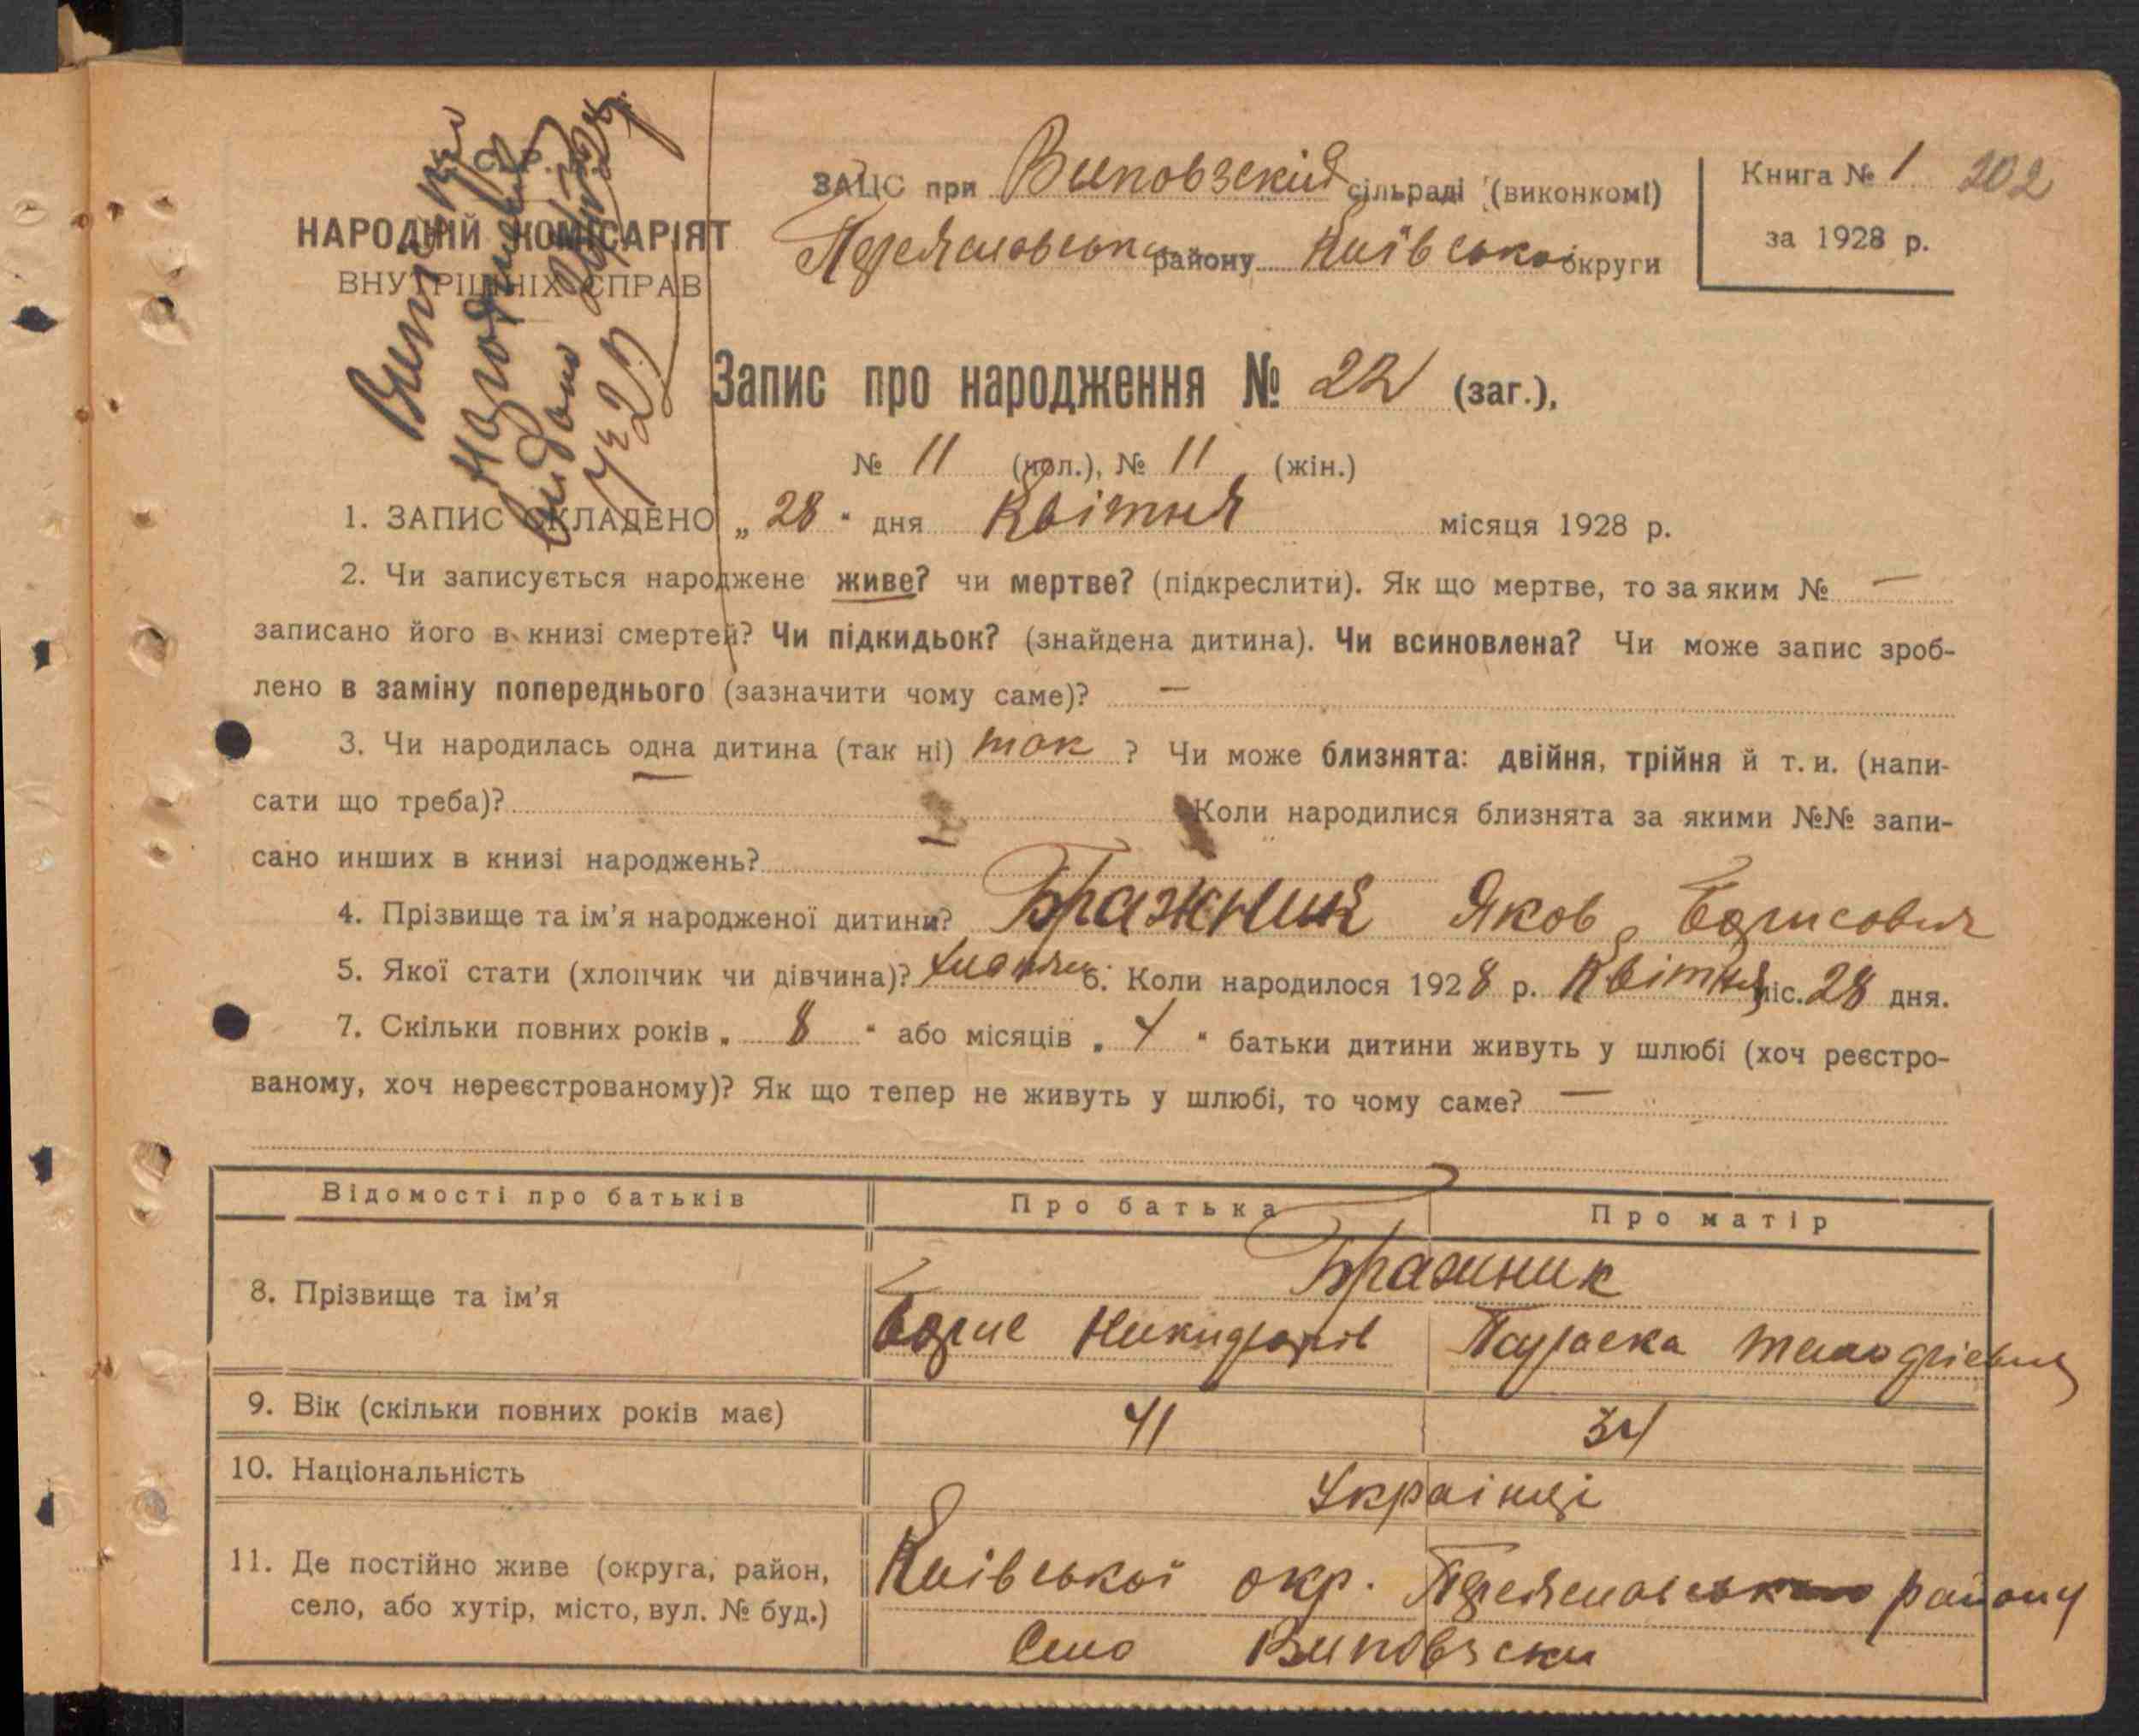 С. Р.
НАРОДНІЙ КОМІСАРІЯТ
ВНУТРІШНІХ СПРАВ
Витяг про
народження
видано
ЗАЦС при Виповзский сільраді (виконкомі)
Переяславського району Київської округи
Книга № 1 202
за 1928 р.
Запис про народження № 22 (заг.),
№ 11 (чол.), № 11 (жін.)
1. ЗАПИС СКЛАДЕНО „ 28 “ дня Квітня місяця 1928 р.
2. Чи записується народжене живе? чи мертве? (підкреслити). Як що мертве, то за яким № —
записано його в книзі смертей? Чи підкидьок? (знайдена дитина). Чи всиновлена? Чи може запис зроб-
лено в заміну попереднього (зазначити чому саме)? —
3. Чи народилась одна дитина (так ні) так ? Чи може близнята: двійня, трійня й т. и. (напи-
сати що треба)? — Коли народилися близнята за якими №№ запи-
сано инших в книзі народжень?
4. Прізвище та ім’я народженої дитини? Бражник Яков Борисович
5. Якої стати (хлопчик чи дівчина)? хлопчик 6. Коли народилося 1928 р. Квітня міс. 28 дня.
7. Скільки повних років „ 8 “ або місяців „ 4 “ батьки дитини живуть у шлюбі (хоч реєстро-
ваному, хоч нереєстрованому)? Як що тепер не живуть у шлюбі, то чому саме? —
Відомості про батьків Про батька Про матір
8. Прізвище та ім’я Бражник
Борис Параска
9. Вік (скільки повних років має) 41 34
10. Національність Українці
11. Де постійно живе (округа, район, Київської окр. Переяславського району
село, або хутір, місто, вул. № буд.) Село Виповзки